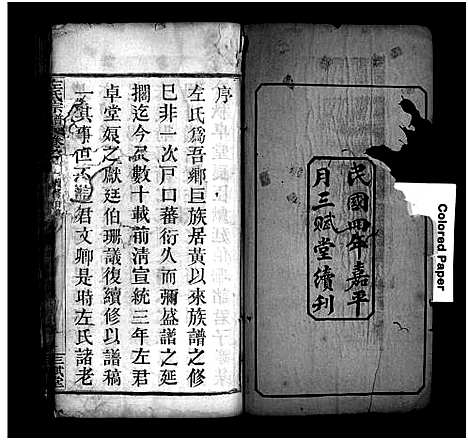 民國四年嘉平
月三賦堂續刊
Colored Paper
序
左氏爲吾鄉巨族居黃以來族譜之修
已非一次戶口蕃衍久而彌盛譜之延
擱迄今蓋數十載前清宣統三年左君
卓堂煥之獻廷伯珊議復續修以譜稿
一其事但 君文卿是時左氏諸老
左氏宗譜
三賦堂